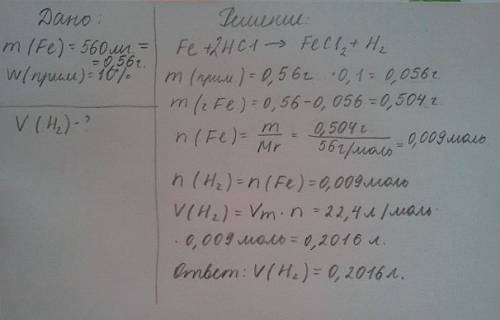 Дано:
m(Fe)=560мг.=
=0,56г.
W(прим.)=10%
V(H₂)-?
Решение:
Fe+2HCl→ FeCl₂+H₂
m(прим.)=0,56г. ·0,1=0,056г
m(г Fe)=0,56-0,056=0,504г.
n(Fe)= m/Mr = 0,504г/56г/моль =0,009моль
n(H₂)=n(Fe)=0,009моль
V(H₂)=Vm·n=22,4л/моль·
·0,009моль=0,2016л.
Ответ: V(H₂)=0,2016л.